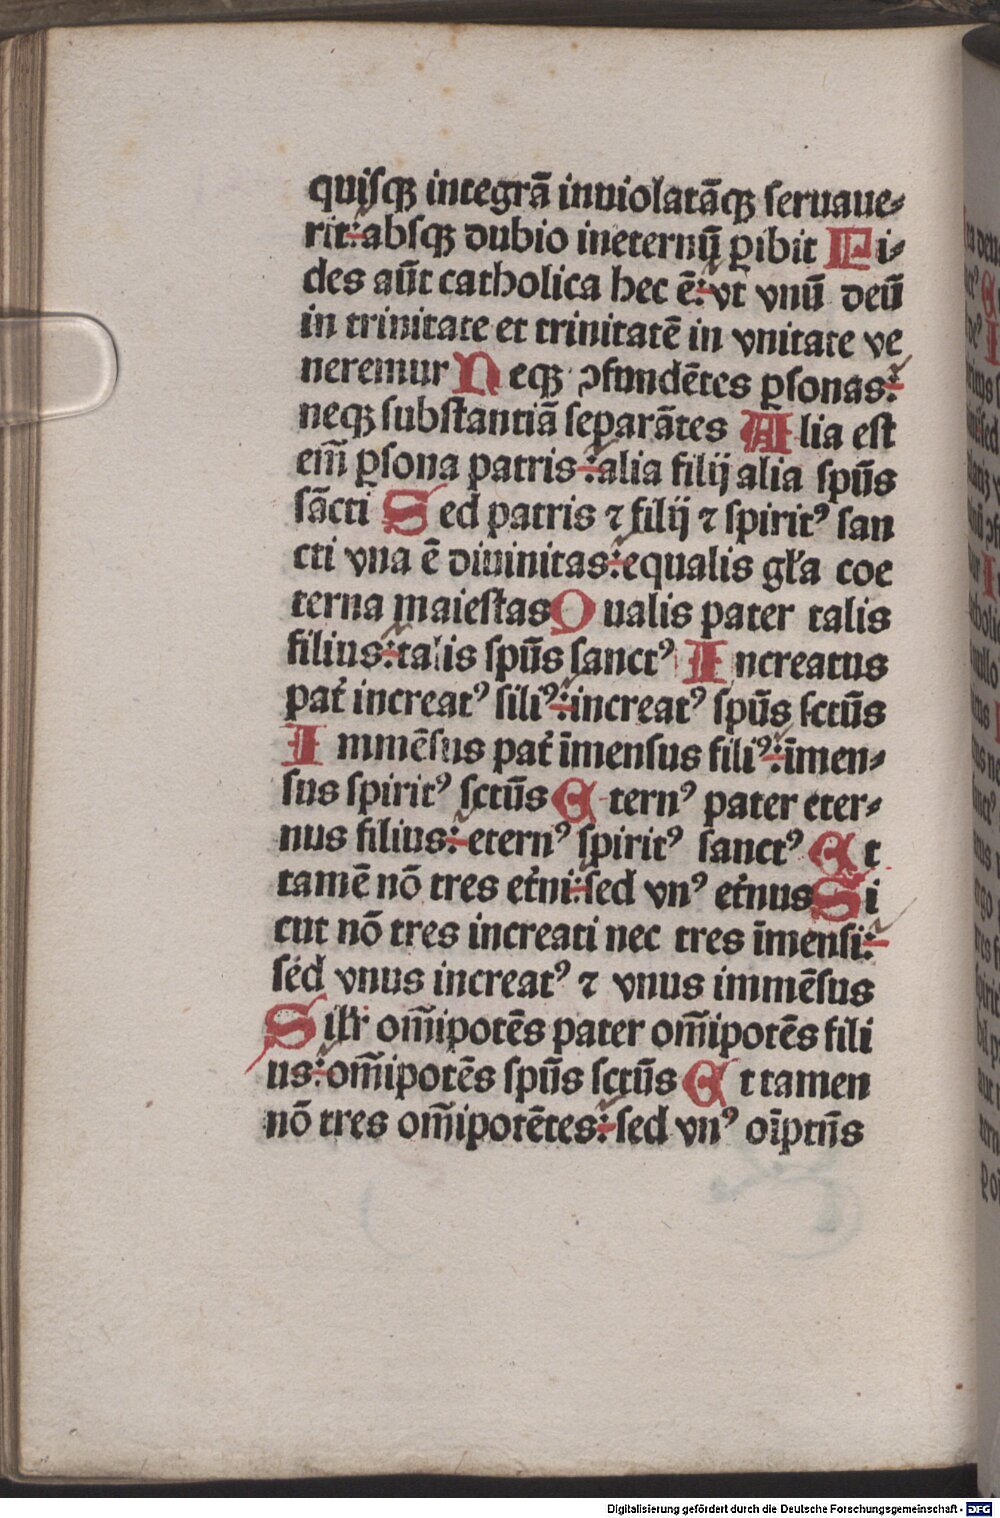 quiſqꝫ integrā inuiolatāqꝫ ſeruaue⸗
rit: abſqꝫ dubio ineternū ꝑibit Fi⸗
des aūt catholica hec ē: vt vnū deū
in trinitate et trinitatē in vnitate ve
neremur Neqꝫ ꝯfundētes ꝑſonas:
neqꝫ ſubſtantiā ſeparātes Alia eſt
em̄ ꝑſona patris: alia filij alia ſpūs
ſācti Sed patris ⁊ filij ⁊ ſpiritꝰ ſan
cti vna ē diuinitas: equalis gła coe
terna maieſtas Qualis pater talis
filius: talis ſpūs ſanctꝰ Increatus
pat̄ increatꝰ filiꝰ: increatꝰ ſpūs ſctūs
Immēſus pat̄ īmenſus filiꝰ: īmen⸗
ſus ſpiritꝰ ſctūs Eternꝰ pater eter⸗
nus filius: eternꝰ ſpiritꝰ ſanctꝰ Et
tamē nō tres et̄ni: ſed vnꝰ et̄nus Si
cut nō tres increati nec tres īmenſi:
ſed vnus increatꝰ ⁊ vnus immēſus
Silr̄ om̄ipotēs pater om̄ipotēs fili
us: om̄ipotēs ſpūs ſctūs Et tamen
nō tres om̄ipotētes: ſed vnꝰ oīptn̄s
Digitalisierung gefördert durch die Deutsche Forschungsgemeinschaft - DFG